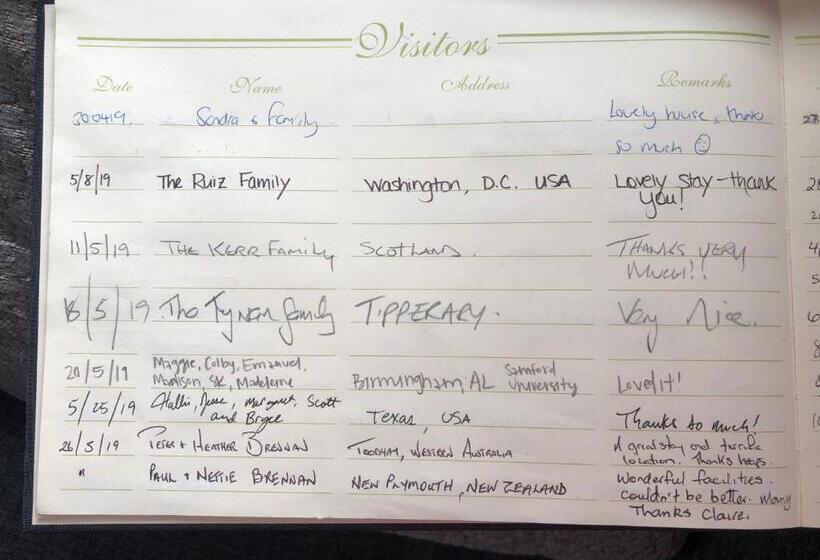 Visitors
Date Name Address Remarks
300419. Sandra & Family Lovely house, thank
so much ☺
5/8/19 The Ruiz Family Washington, D.C. USA Lovely stay - thank
you!
11/5/19 THE KERR FAMILY SCOTLAND. THANKS VERY
MUCH!!
18/5/19 The Tynan family TIPPERARY. Very Nice.
20/5/19 Maggie, Colby, Emanuel, Birmingham, AL Samford Loved it!
Madison, SK, Madeleine University
5/25/19 Hallie, Jesse, Margaret, Scott Texas, USA Thanks so much!
and Bryce
26/5/19 PETER + HEATHER BRENNAN TOODYAY, WESTERN AUSTRALIA A great stay and terrific
location. Thanks heaps.
" PAUL + NETTIE BRENNAN NEW PLYMOUTH, NEW ZEALAND Wonderful facilities.
Couldn't be better. Many
Thanks Claire.